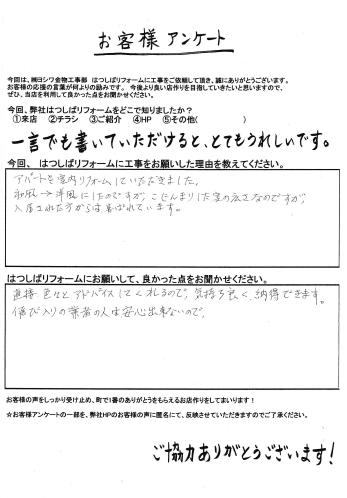 お客様 アンケート
今回は、㈱ヨシワ金物工事部 はつしばリフォームに工事をご依頼して頂き、誠にありがとうございます。
お客様の応援の言葉が何よりの励みです。 今後より良い店作りを目指していきたいと思いますので、
ぜひ、当店を利用して良かった点をお聞かせください。
今回、弊社はつしばリフォームをどこで知りましたか？
①来店 ②チラシ ③ご紹介 ④HP ⑤その他( )
一言でも書いていただけると、とてもうれしいです。
今回、 はつしばリフォームに工事をお願いした理由を教えてください。
アパートを室内リフォームしていただきました。
和風→洋風にしたのですが、こじんまりした室の広さなのですが、
入居された方からは喜ばれています。
はつしばリフォームにお願いして、良かった点をお聞かせください。
直接 色々と アドバイスしてくれるので、気持ち良く、納得できます。
飛び入りの業者の人は安心出来ないので、
お客様の声をしっかり受け止め、町で1番のありがとうをもらえるお店作りをしてまいります！
☆お客様アンケートの一部を、弊社HPのお客様の声に匿名にて、反映させていただきますのでご了承ください。
ご協力ありがとうございます！